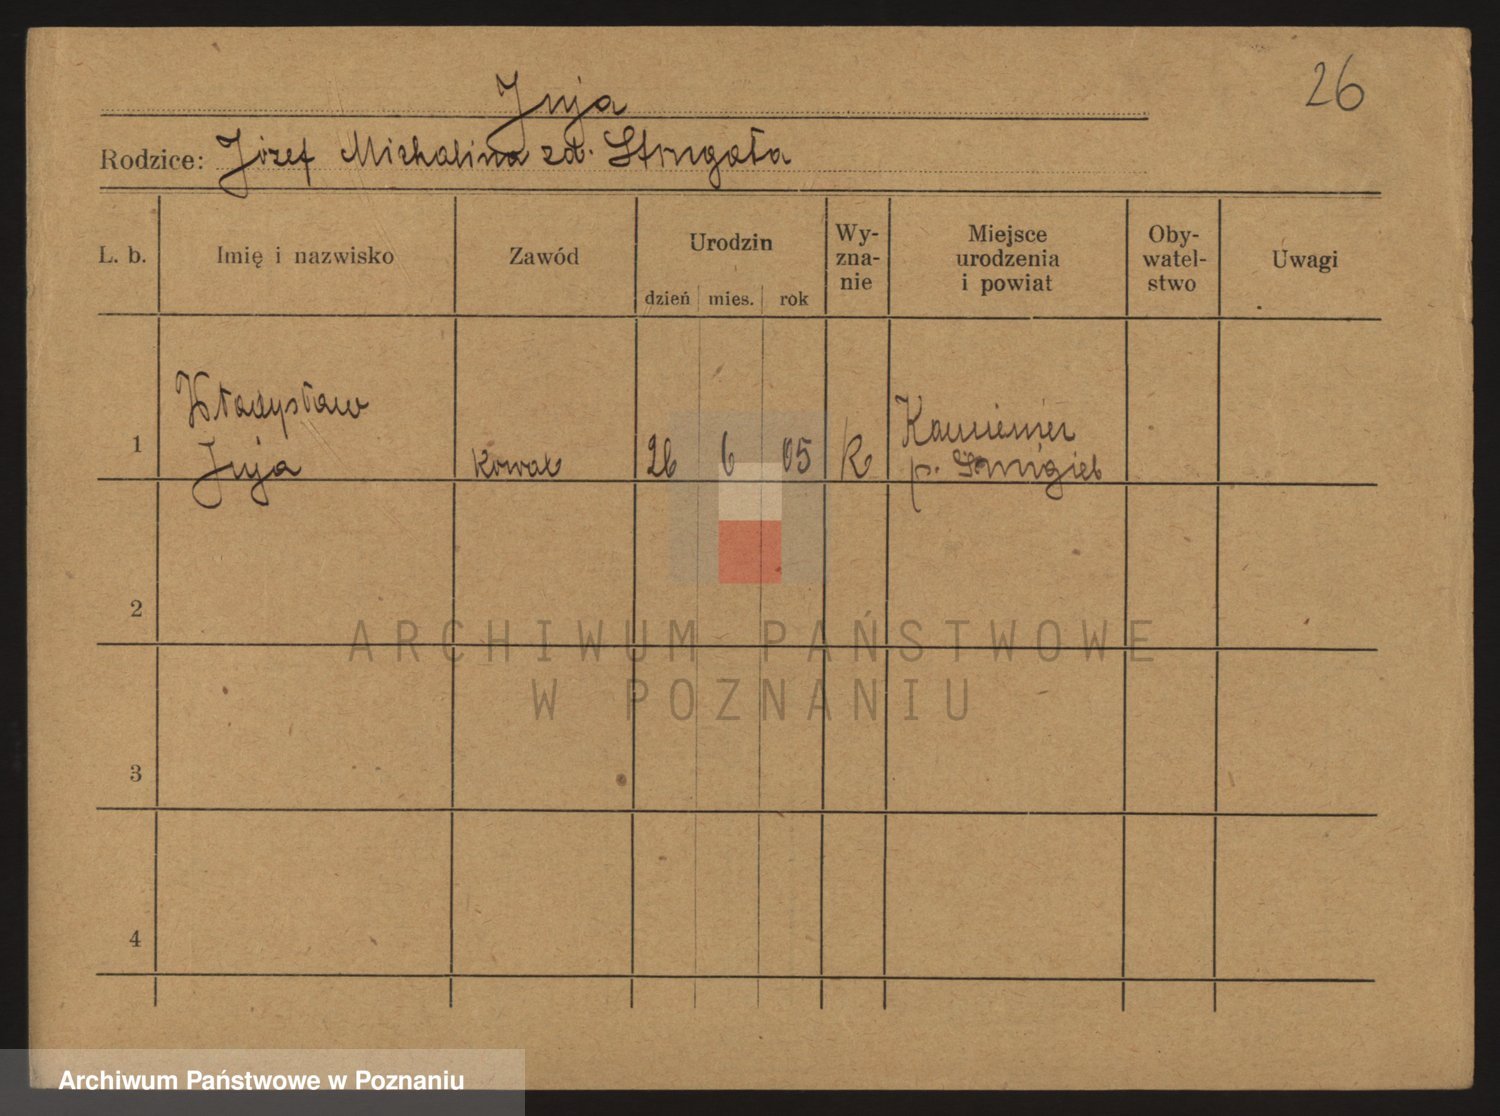 26
Juja
Rodzice: Józef Michalina zd. Strugała
L. b. Imię i nazwisko Zawód Urodzin dzień mies. rok Wy-zna-nie Miejsce urodzenia i powiat Oby-watel-stwo Uwagi
Władysław
1 Juja Kowal 26 6 05 R Kamieniec
p. Śmigiel
2
3
4
ARCHIWUM PAŃSTWOWE
W POZNANIU
Archiwum Państwowe w Poznaniu